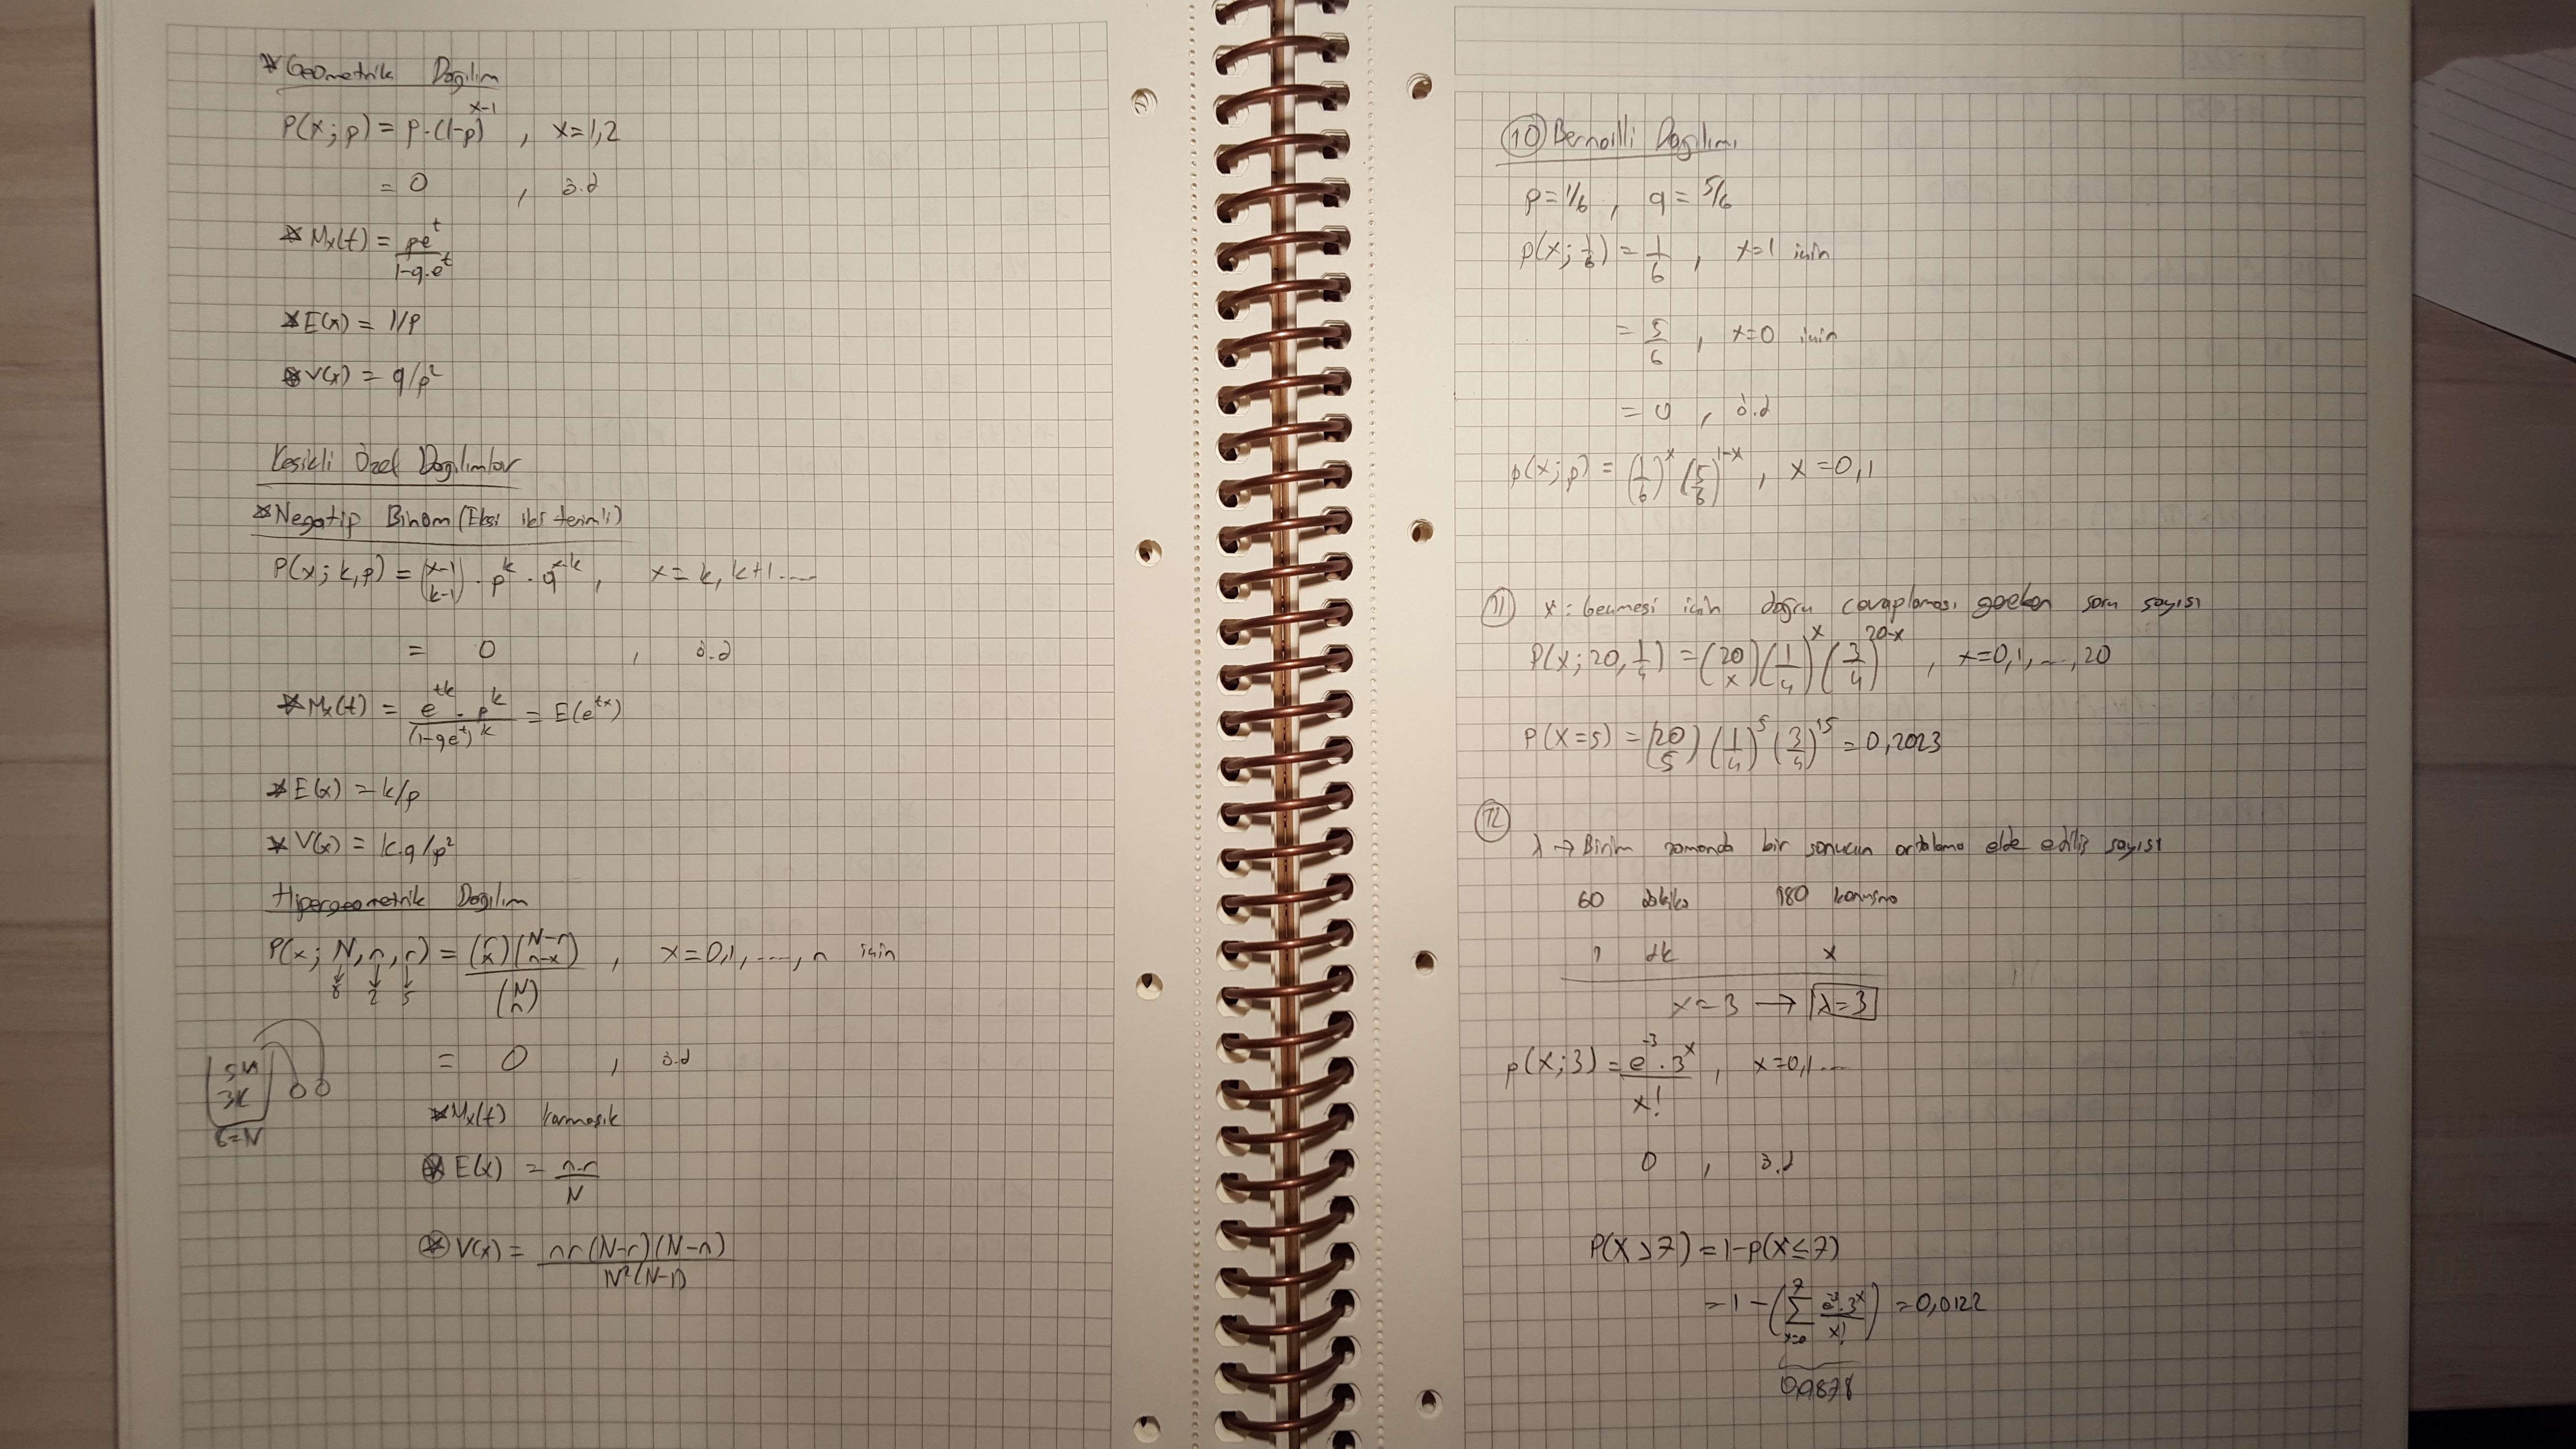 * Geometrik Dağılım
P(x; p) = p·(1-p)^(x-1) , x=1,2
= 0 , ö.d
* Mx(t) = pe^t / (1-q.e^t)
* E(x) = 1/p
* V(x) = q/p²
Kesikli Özel Dağılımlar
* Negatip Binom (Eksi iki terimli)
P(x; k,p) = (x-1 k-1) · p^k · q^(x-k) , x = k, k+1 ....
= 0 , ö.d
* Mx(t) = e^(tk) · p^k / (1-qe^t)^k = E(e^(tx))
* E(x) = k/p
* V(x) = k.q/p²
Hipergeometrik Dağılım
P(x; N, n, r) = (r x)(N-r n-x) / (N n) , x=0,1,....,n için
8 2 5
= 0 , ö.d
5M
3K
8=N
* Mx(t) karmaşık
* E(x) = n.r / N
* V(x) = nr(N-r)(N-n) / N²(N-1)
10 Bernoilli Dağılımı
p=1/6 , q=5/6
p(x; 1/6) = 1/6 , x=1 için
= 5/6 , x=0 için
= 0 , ö.d
p(x; p) = (1/6)^x (5/6)^(1-x) , x=0,1
11 x: Geçmesi için doğru cevaplaması gereken soru sayısı
P(x; 20, 1/4) = (20 x) (1/4)^x (3/4)^(20-x) , x=0,1,....,20
P(X=5) = (20 5) (1/4)^5 (3/4)^15 = 0,2023
12
λ → Birim zamanda bir sonucun ortalama elde ediliş sayısı
60 dakika 180 konuşma
1 dk x
x=3 → λ=3
p(x; 3) = e^-3 · 3^x / x! , x=0,1....
0 , ö.d
P(X>7) = 1-p(x≤7)
= 1 - (∑ x=0 7 e^-3 · 3^x / x!) = 0,0122
0,9878